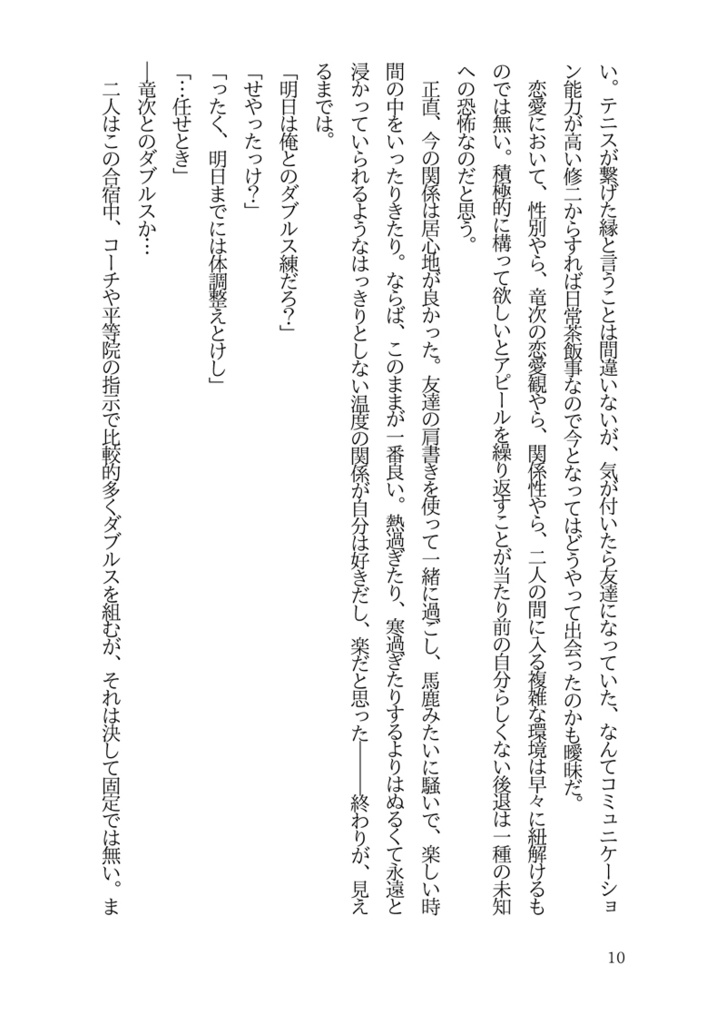 い。テニスが繋げた縁と言うことは間違いないが、気が付いたら友達になっていた、なんてコミュニケーショ
ン能力が高い修二からすれば日常茶飯事なので今となってはどうやって出会ったのかも曖昧だ。
恋愛において、性別やら、竜次の恋愛観やら、関係性やら、二人の間に入る複雑な環境は早々に紐解けるも
のでは無い。積極的に構って欲しいとアピールを繰り返すことが当たり前の自分らしくない後退は一種の未知
への恐怖なのだと思う。
正直、今の関係は居心地が良かった。友達の肩書きを使って一緒に過ごし、馬鹿みたいに騒いで、楽しい時
間の中をいったりきたり。ならば、このままが一番良い。熱過ぎたり、寒過ぎたりするよりはぬるくて永遠と
浸かっていられるようなはっきりとしない温度の関係が自分は好きだし、楽だと思った――終わりが、見え
るまでは。
「明日は俺とのダブルス練だろ？」
「せやったっけ？」
「ったく、明日までには体調整えとけし」
「…任せとき」
―竜次とのダブルスか…
二人はこの合宿中、コーチや平等院の指示で比較的多くダブルスを組むが、それは決して固定では無い。ま
10